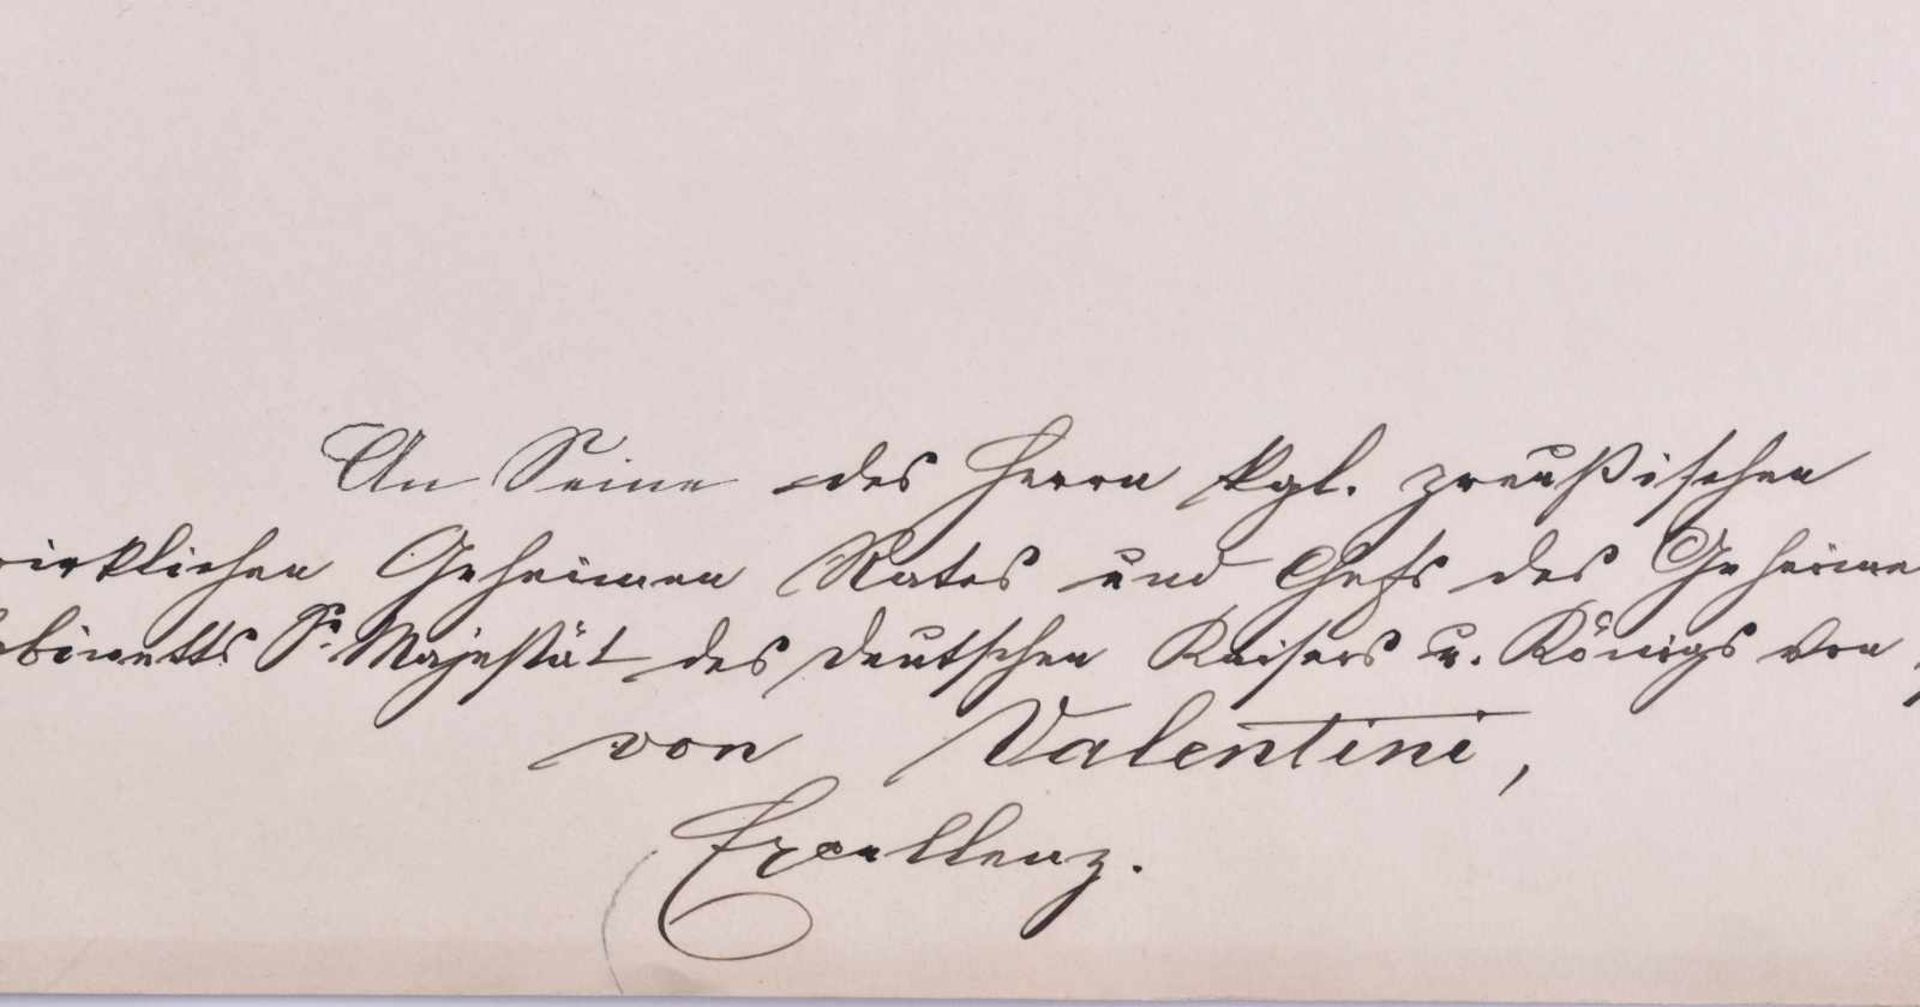 An Seine des Herrn kgl. preußischen
wirklichen Geheimen Rates und Chefs des Geheimen
abinetts Sr. Majestät des deutschen Kaisers u. Königs von
von Valentini,
Excellenz.